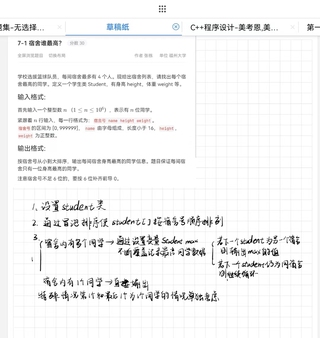 题集-无选择...
草稿纸
C++程序设计-美考恩,美...
第一
7-1 宿舍谁最高?
学校选拔篮球队员，每间宿舍最多有 4 个人。现给出宿舍列表，请找出每个宿
舍最高的同学。定义一个学生类 Student，有身高 height，体重 weight 等。
输入格式:
首先输入一个整型数 n (1 ≤ n ≤ 10⁶)，表示有 n 位同学。
紧跟着 n 行输入，每一行格式为：宿舍号 name height weight 。
宿舍号 的区间为 [0, 999999]， name 由字母组成，长度小于 16， height ，
weight 为正整数。
输出格式:
按宿舍号从小到大排序，输出每间宿舍身高最高的同学信息。题目保证每间宿
舍只有一位身高最高的同学。
注意宿舍号不足 6 位的，要按 6 位补齐前导 0。
1. 设置student类
2. 通过冒泡排序使student[]按宿舍号顺序排列
3.
宿舍内有多个同学→通过设置变量Student max
不断覆盖记录最高同学数据
若下一个student为另一个宿舍
则输出max的值
若下一个student仍为同宿舍
则继续循环
宿舍内有1个同学→直接输出